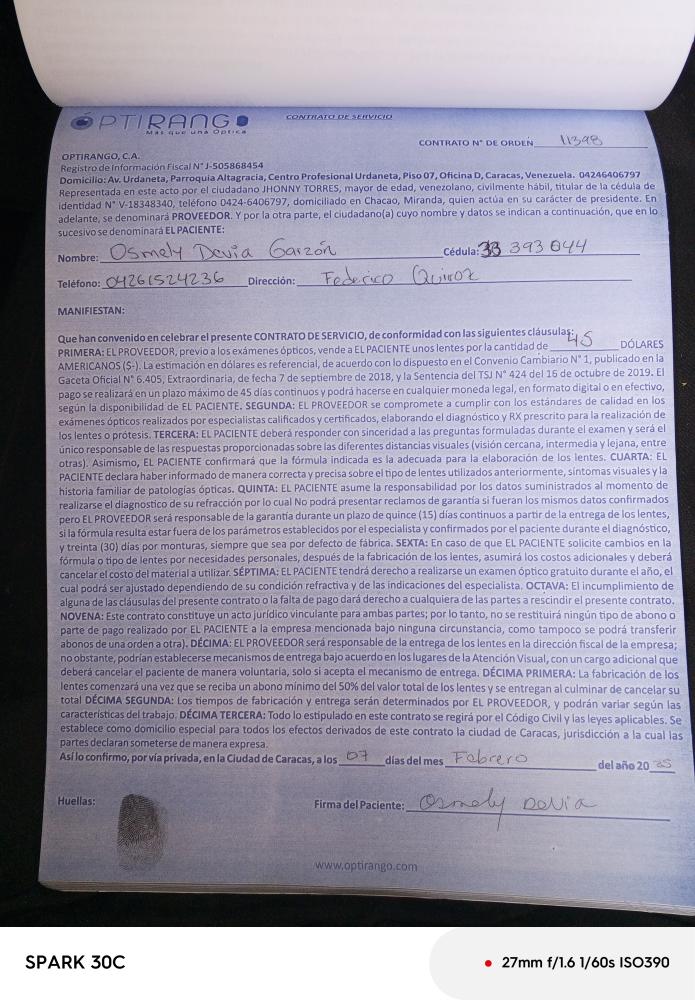 OPTIRANGO
Más que una Óptica
CONTRATO DE SERVICIO
CONTRATO N° DE ORDEN 11398
OPTIRANGO, C.A.
Registro de Información Fiscal N° J-505868454
Domicilio: Av. Urdaneta, Parroquia Altagracia, Centro Profesional Urdaneta, Piso 07, Oficina D, Caracas, Venezuela. 04246406797
Representada en este acto por el ciudadano JHONNY TORRES, mayor de edad, venezolano, civilmente hábil, titular de la cédula de
identidad N° V-18348340, teléfono 0424-6406797, domiciliado en Chacao, Miranda, quien actúa en su carácter de presidente. En
adelante, se denominará PROVEEDOR. Y por la otra parte, el ciudadano(a) cuyo nombre y datos se indican a continuación, que en lo
sucesivo se denominará EL PACIENTE:
Nombre: Osmely Devia Garzón Cédula: 33 393 044
Teléfono: 04261524236 Dirección: Federico Quiroz
MANIFIESTAN:
Que han convenido en celebrar el presente CONTRATO DE SERVICIO, de conformidad con las siguientes cláusulas:
PRIMERA: EL PROVEEDOR, previo a los exámenes ópticos, vende a EL PACIENTE unos lentes por la cantidad de 45 DÓLARES
AMERICANOS ($-). La estimación en dólares es referencial, de acuerdo con lo dispuesto en el Convenio Cambiario N° 1, publicado en la
Gaceta Oficial N° 6.405, Extraordinaria, de fecha 7 de septiembre de 2018, y la Sentencia del TSJ N° 424 del 16 de octubre de 2019. El
pago se realizará en un plazo máximo de 45 días continuos y podrá hacerse en cualquier moneda legal, en formato digital o en efectivo,
según la disponibilidad de EL PACIENTE. SEGUNDA: EL PROVEEDOR se compromete a cumplir con los estándares de calidad en los
exámenes ópticos realizados por especialistas calificados y certificados, elaborando el diagnóstico y RX prescrito para la realización de
los lentes o prótesis. TERCERA: EL PACIENTE deberá responder con sinceridad a las preguntas formuladas durante el examen y será el
único responsable de las respuestas proporcionadas sobre las diferentes distancias visuales (visión cercana, intermedia y lejana, entre
otras). Asimismo, EL PACIENTE confirmará que la fórmula indicada es la adecuada para la elaboración de los lentes. CUARTA: EL
PACIENTE declara haber informado de manera correcta y precisa sobre el tipo de lentes utilizados anteriormente, síntomas visuales y la
historia familiar de patologías ópticas. QUINTA: EL PACIENTE asume la responsabilidad por los datos suministrados al momento de
realizarse el diagnostico de su refracción por lo cual No podrá presentar reclamos de garantía si fueran los mismos datos confirmados
pero EL PROVEEDOR será responsable de la garantía durante un plazo de quince (15) días continuos a partir de la entrega de los lentes,
si la fórmula resulta estar fuera de los parámetros establecidos por el especialista y confirmados por el paciente durante el diagnóstico,
y treinta (30) días por monturas, siempre que sea por defecto de fábrica. SEXTA: En caso de que EL PACIENTE solicite cambios en la
fórmula o tipo de lentes por necesidades personales, después de la fabricación de los lentes, asumirá los costos adicionales y deberá
cancelar el costo del material a utilizar. SÉPTIMA: EL PACIENTE tendrá derecho a realizarse un examen óptico gratuito durante el año, el
cual podrá ser ajustado dependiendo de su condición refractiva y de las indicaciones del especialista. OCTAVA: El incumplimiento de
alguna de las cláusulas del presente contrato o la falta de pago dará derecho a cualquiera de las partes a rescindir el presente contrato.
NOVENA: Este contrato constituye un acto jurídico vinculante para ambas partes; por lo tanto, no se restituirá ningún tipo de abono o
parte de pago realizado por EL PACIENTE a la empresa mencionada bajo ninguna circunstancia, como tampoco se podrá transferir
abonos de una orden a otra). DÉCIMA: EL PROVEEDOR será responsable de la entrega de los lentes en la dirección fiscal de la empresa;
no obstante, podrían establecerse mecanismos de entrega bajo acuerdo en los lugares de la Atención Visual, con un cargo adicional que
deberá cancelar el paciente de manera voluntaria, solo si acepta el mecanismo de entrega. DÉCIMA PRIMERA: La fabricación de los
lentes comenzará una vez que se reciba un abono mínimo del 50% del valor total de los lentes y se entregan al culminar de cancelar su
total DÉCIMA SEGUNDA: Los tiempos de fabricación y entrega serán determinados por EL PROVEEDOR, y podrán variar según las
características del trabajo. DÉCIMA TERCERA: Todo lo estipulado en este contrato se regirá por el Código Civil y las leyes aplicables. Se
establece como domicilio especial para todos los efectos derivados de este contrato la ciudad de Caracas, jurisdicción a la cual las
partes declaran someterse de manera expresa.
Así lo confirmo, por vía privada, en la Ciudad de Caracas, a los 07 días del mes Febrero del año 20 25
Huellas:
Firma del Paciente: Osmely Devia
www.optirango.com
SPARK 30C
27mm f/1.6 1/60s ISO390